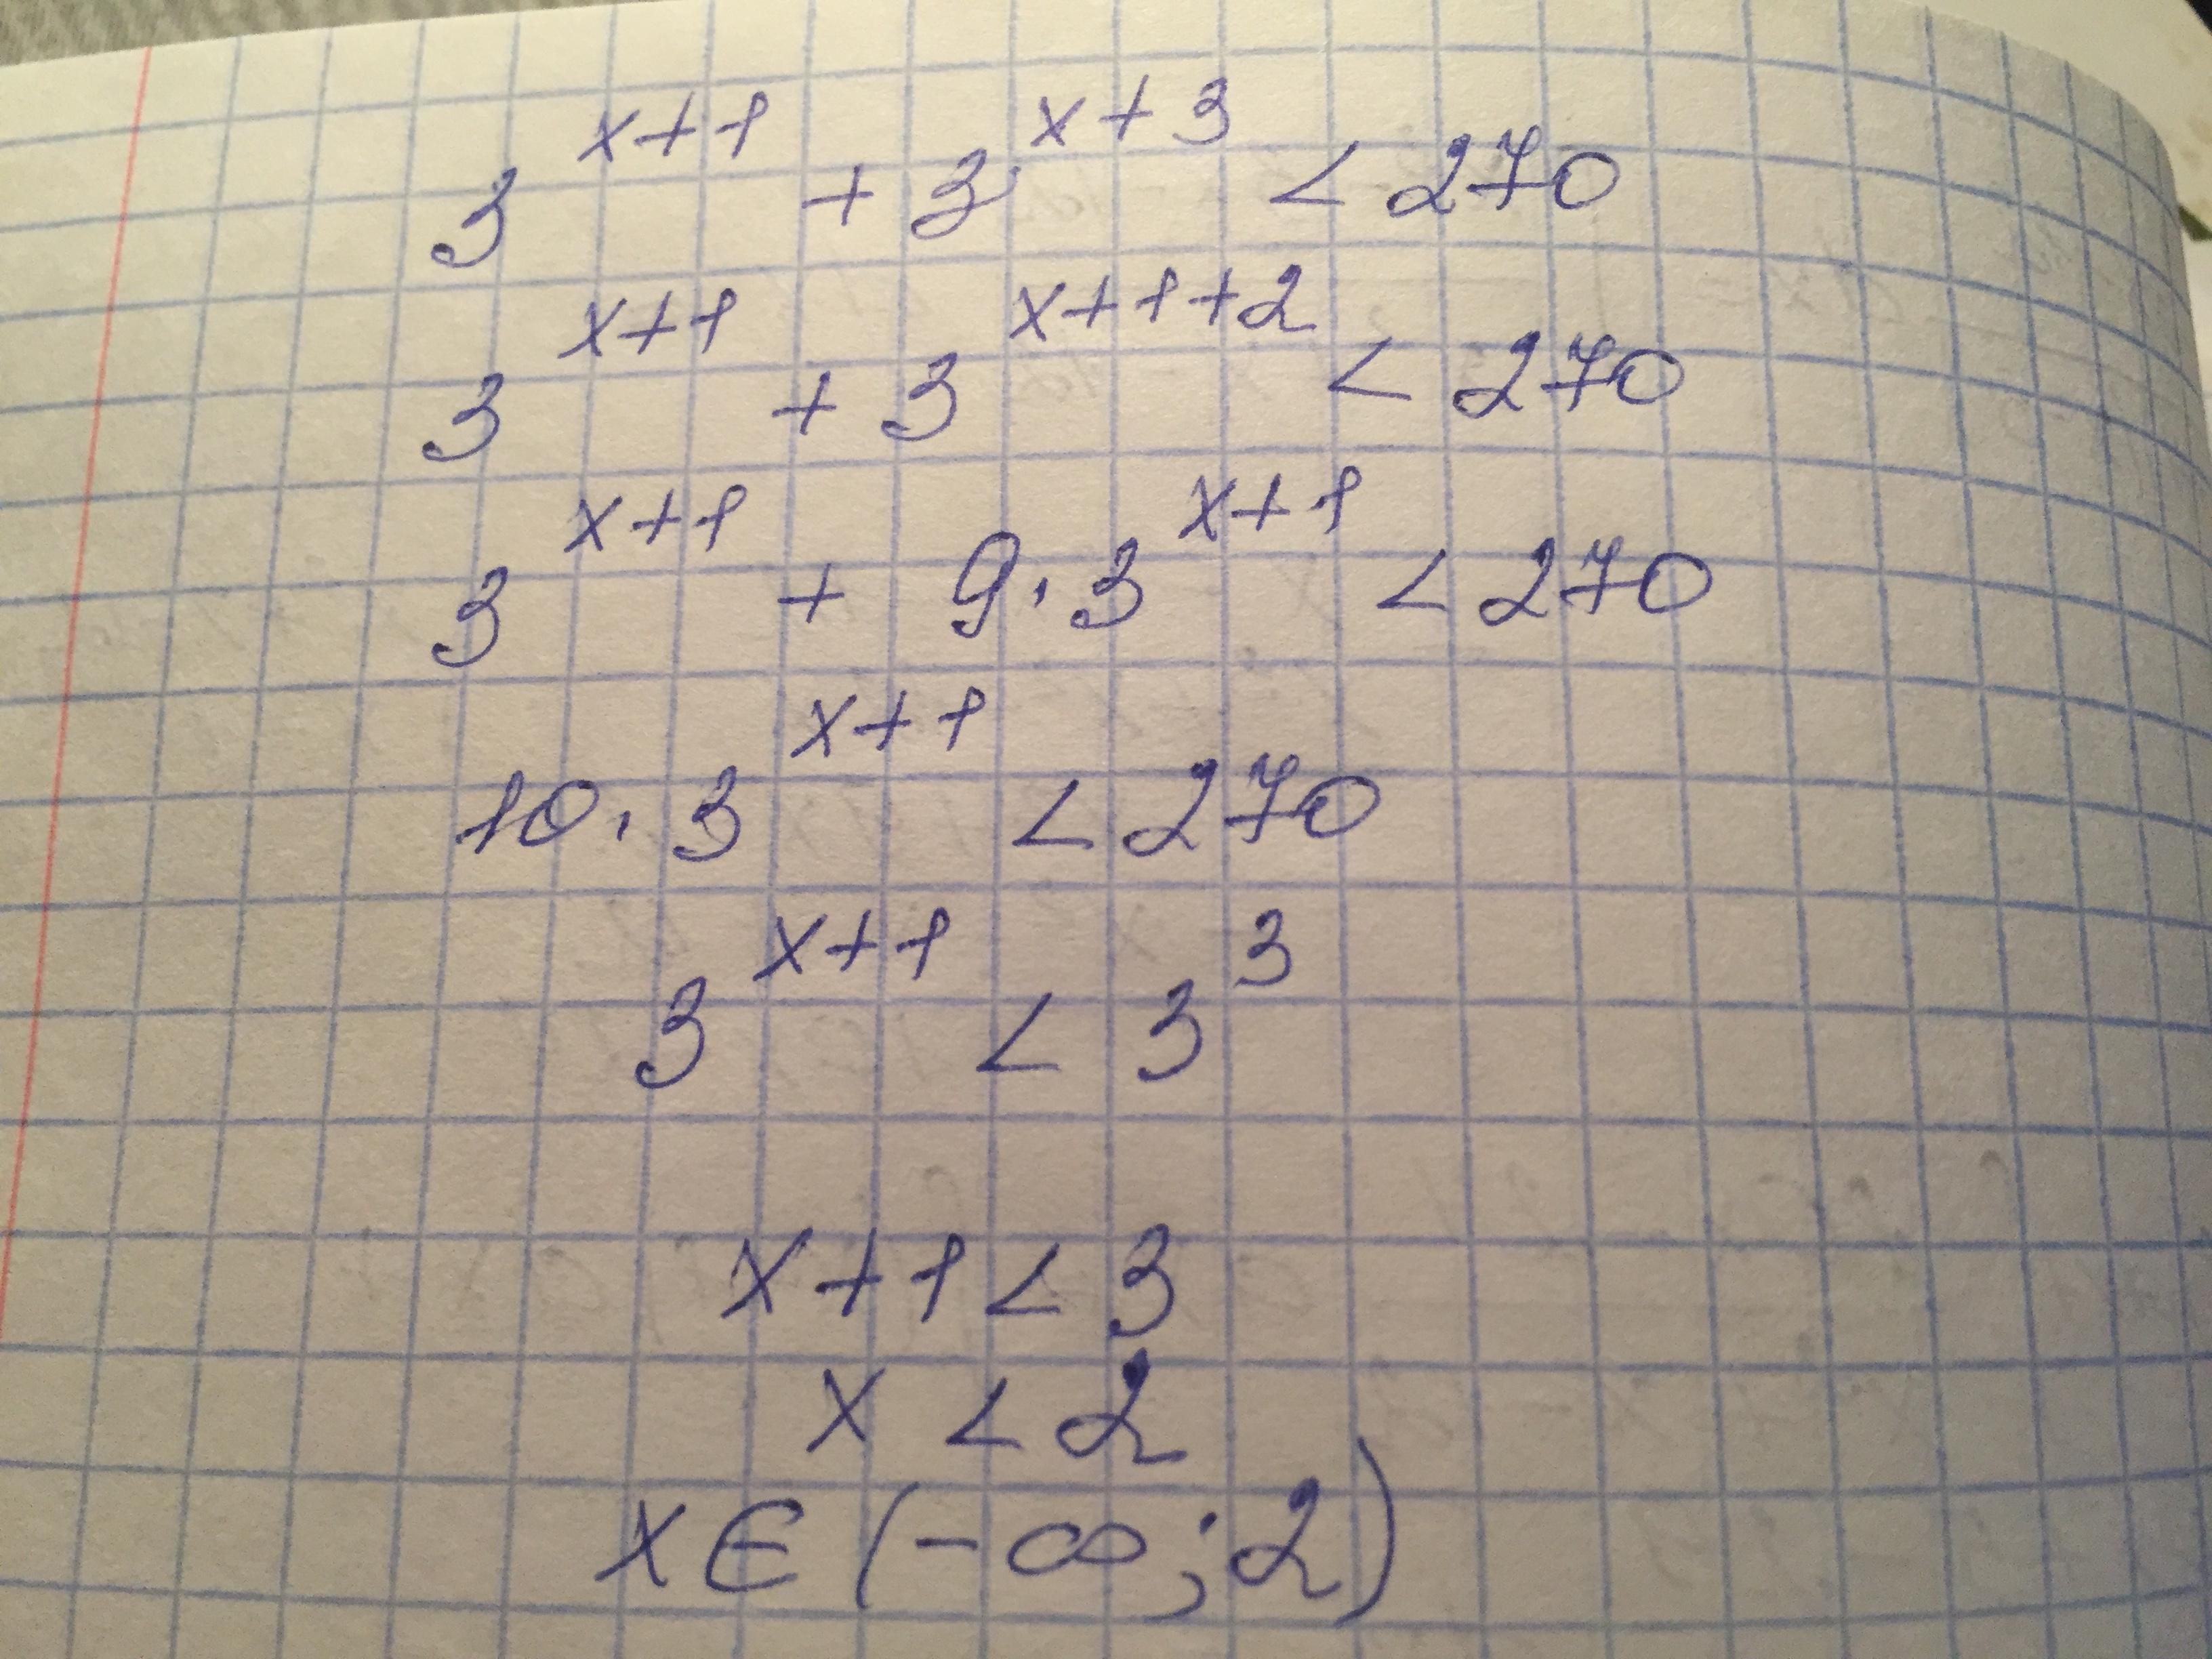 3^{x+1} + 3^{x+3} < 270
3^{x+1} + 3^{x+1+2} < 270
3^{x+1} + 9 · 3^{x+1} < 270
10 · 3^{x+1} < 270
3^{x+1} < 3^3
x+1 < 3
x < 2
x ∈ (-∞; 2)